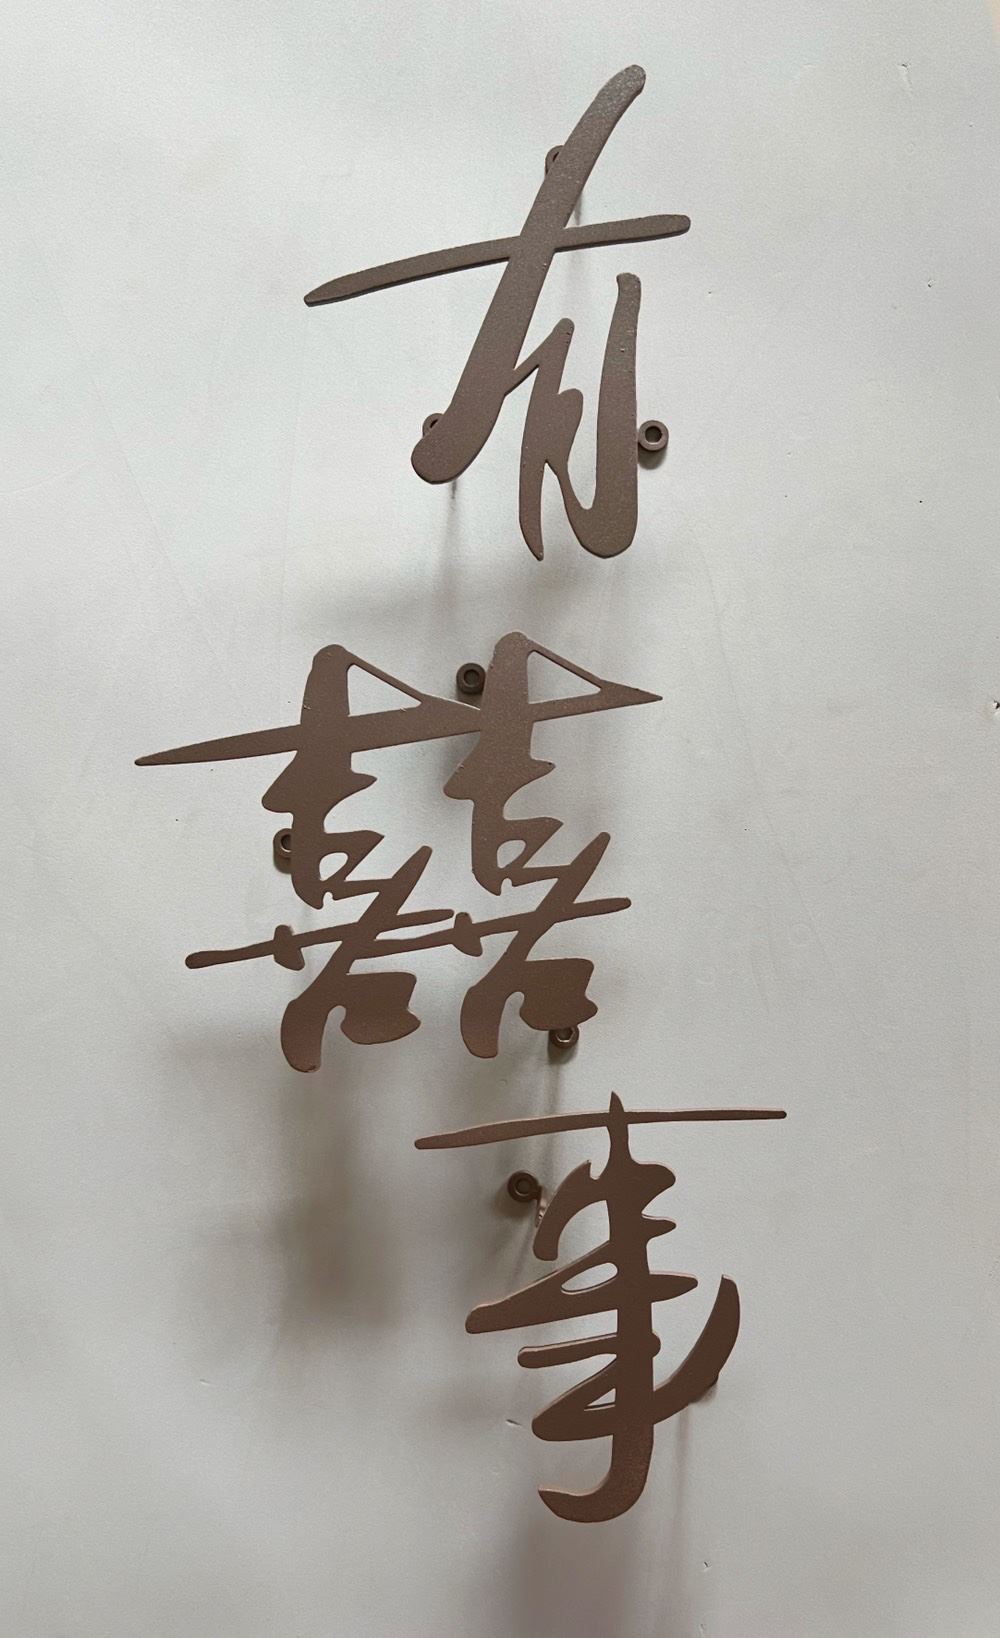 有囍事